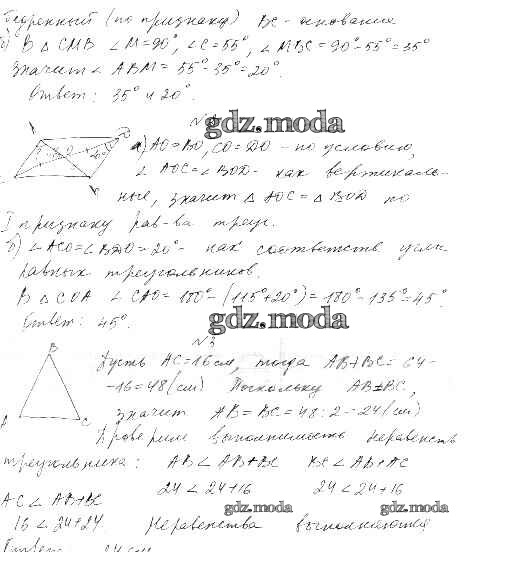 бедренный (по признаку) BC - основание
б) В △ CMB ∠M=90°, ∠C=55°, ∠MBC=90°-55°=35°
значит ∠ ABM = 55°-35°=20°.
Ответ: 35° и 20°.
gdz.moda
а) AO=BO, CO=DO - по условию,
∠ AOC=∠BOD - как вертикаль-
ные, значит △ AOC = △ BOD по
I признаку рав-ва треуг.
б) ∠ACO=∠BDO=20° - как соответств. углы
равных треугольников.
В △ COA ∠ CAO=180°-(115°+20°)=180°-135°=45°
Ответ: 45°.
gdz.moda
№3
B
A
C
Пусть AC=16см, тогда AB+BC= 64-
-16=48(см) Поскольку AB=BC,
значит AB=BC=48:2=24(см)
Проверим выполнимость неравенств
треугольника: AB < AB+BC BC < AB+AC
24 < 24+16 24 < 24+16
AC < AB+BC
gdz.moda gdz.moda
16 < 24+24. Неравенства выполняются
Ответ: 24 см